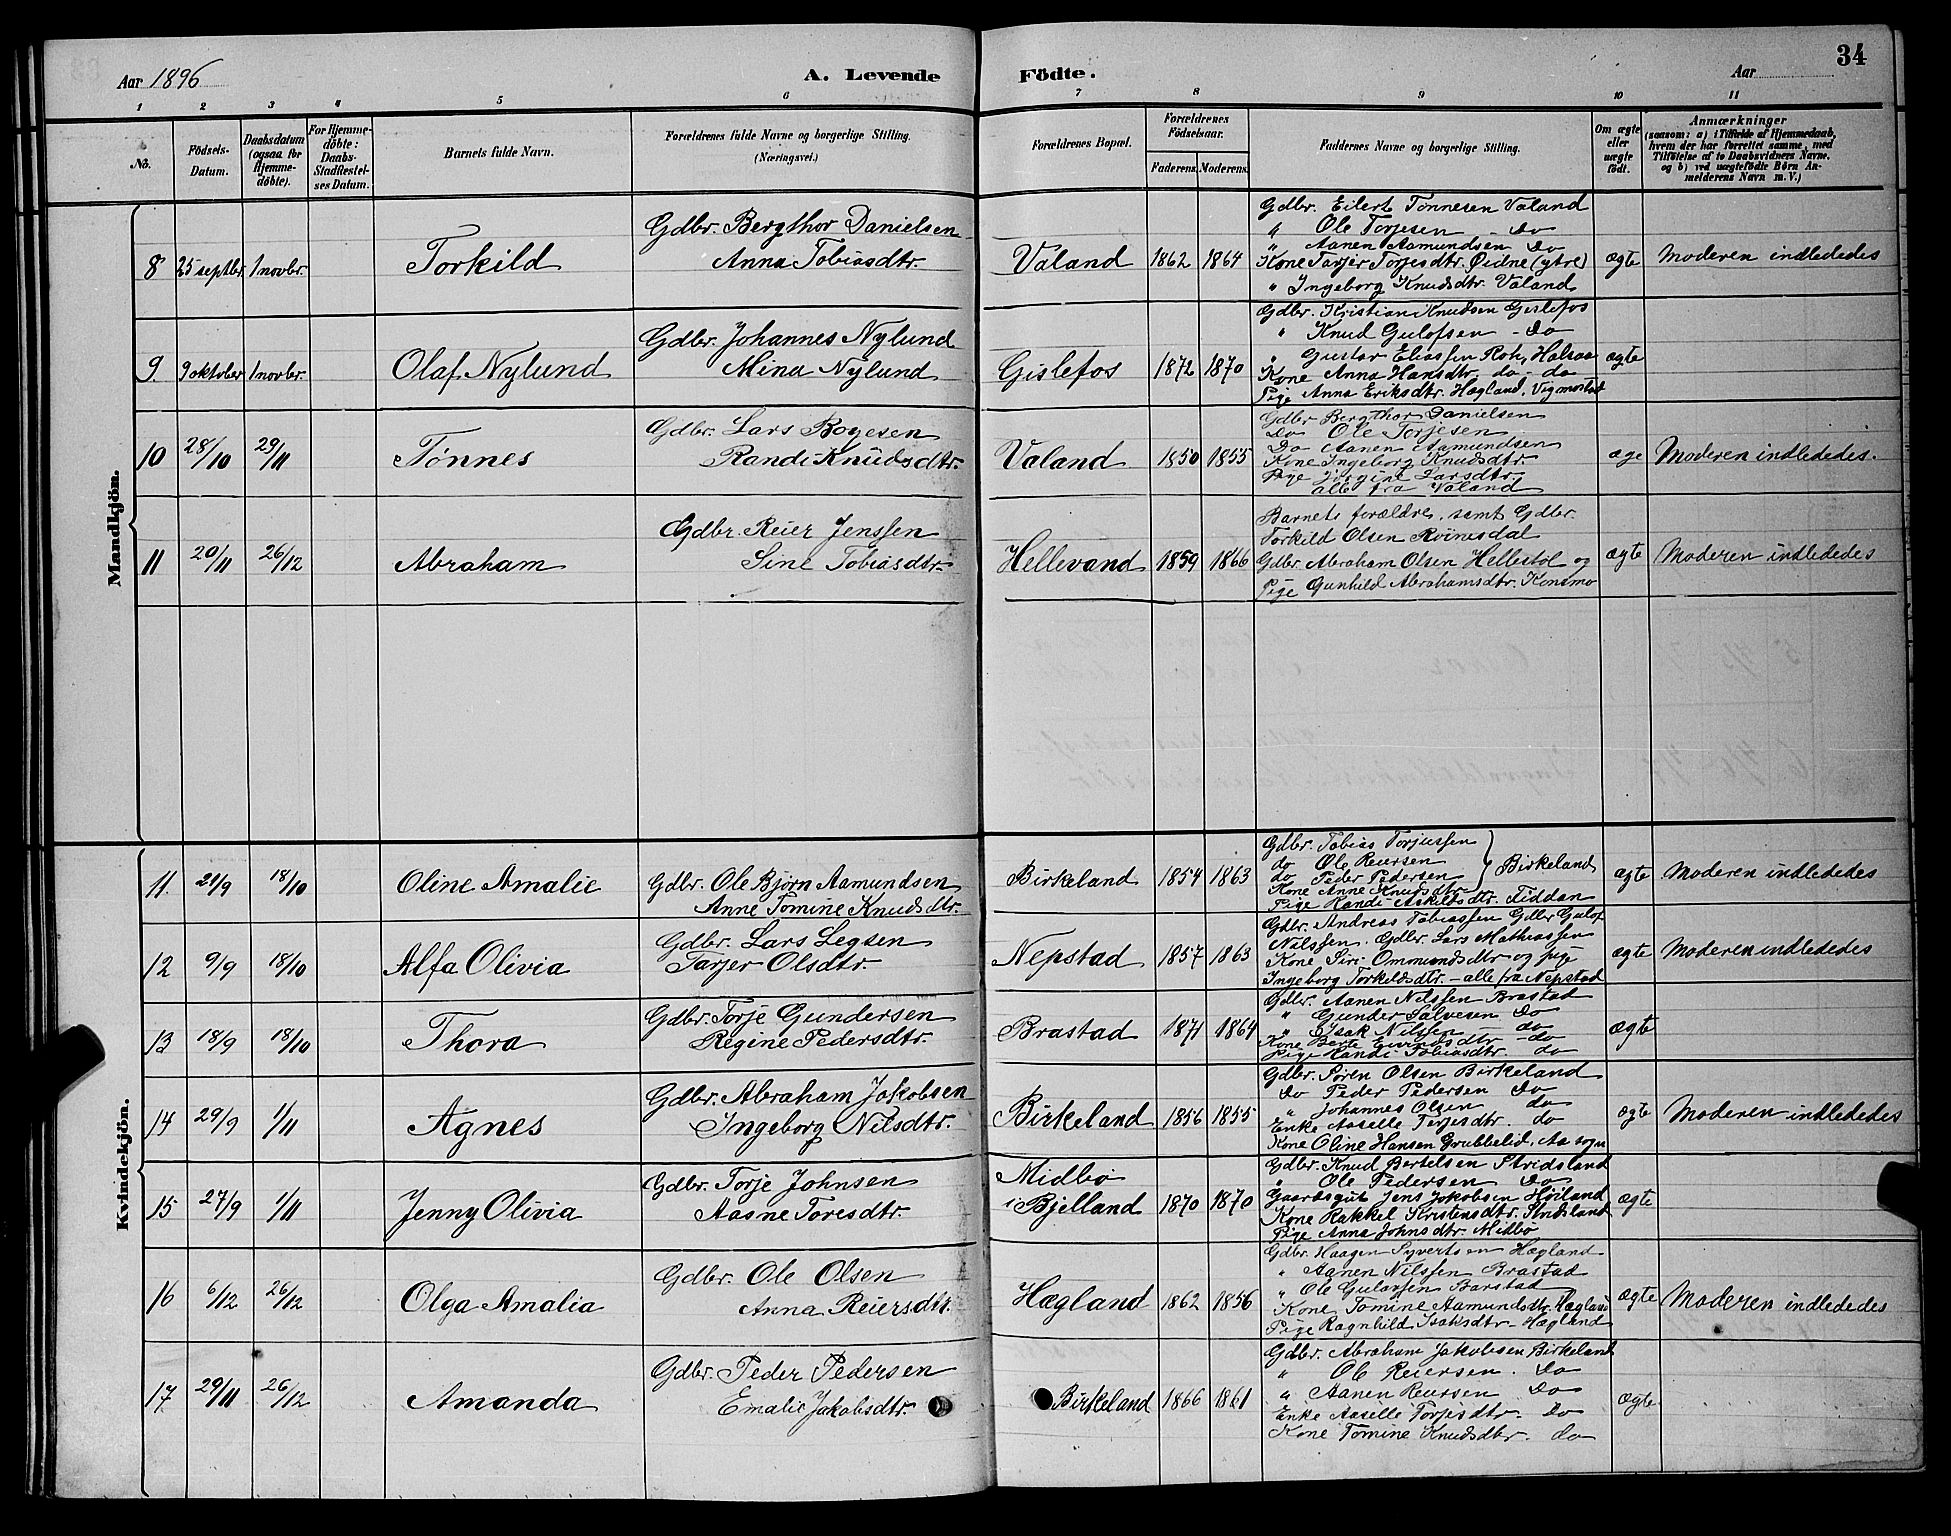 Aar 1896
A. Levende Födte.
Aar
34
1 2 3 4 5 6 7 8 9 10 11
No.
Födsels-Datum.
Daabsdatum (ogsaa for Hjemme-döbte).
For Hjemme-döbte: Daabs-Stadfæstel-ses Datum.
Barnets fulde Navn.
Forældrenes fulde Navne og borgerlige Stilling.
(Næringsvei.)
Forældrenes Bopæl.
Forældrenes Födselsaar.
Faderens. Moderens.
Faddernes Navne og borgerlige Stilling.
Om ægte eller uægte födt.
Anmærkninger
(saasom: a) i Tilfælde af Hjemmedaab,
hvem der har forrettet samme, med
Tilföielse af to Daabsvidners Navne,
og b) ved uægtefödte Börn An-
melderens Navn m. V.)
Mandkjön.
8 25 septbr. 1 novbr. Torkild
Gdbr. Bergthor Danielsen
Anna Tobiasdtr.
Valand 1862 1864
Gdbr. Eilert Tønnesen Valand
" Ole Torjesen - Do
" Aanen Aamundsen Do
Kone Tarjer Torjesdtr. Øidne (ytre)
" Ingeborg Knudsdtr. Valand
ægte Moderen indlededes
9. 9 oktober 1 novbr. Olaf Nylund
Gdbr. Johannes Nylund
Mina Nylund
Gislefos 1872 1870
Gdbr. Kristian Knudsen Gislefos
" Knud Gulofsen - Do
" Gustav Eliassen Roh, Halsaa
Kone Anna Hansdtr. do - do
Pige Anna Eriksdtr. Hægland, Vigmostad
ægte
10 28/10 29/11 Tønnes
Gdbr. Lars Bogesen
Randi Knudsdtr.
Valand 1850 1855
Gdbr Bergthor Danielsen
Do Ole Torjesen
Do Aanen Aamundsen
Kone Ingeborg Knudsdtr.
Pige Larsdtr.
alle fra Valand
æge Moderen indlededes.
11 20/11 26/12 Abraham
Gdbr. Reier Jenssen
Sine Tobiasdtr.
Hellevand 1859 1866
Barnets forældre, samt Gdbr.
Torkild Olsen Kvinesdal
Gdbr. Abraham Olsen Hellestøl og
Pige Gunhild Abrahamsdtr. Konsmo
ægte Moderen indlededes
Kvindekjön.
11. 21/9 18/10 Oline Amalie
Gdbr. Ole Bjørn Aamundsen
Anne Tomine Knudsdtr.
Birkeland 1854 1863
Gdbr. Tobias Torjussen
do Ole Reiersen
do Peder Pedersen
Kone Anne Knudsdtr
Birkeland
Pige Randi Askildsdtr. Fiddan
ægte Moderen indlededes
12 9/9 18/10 Alfa Olivia
Gdbr. Lars Legsen
Tarjer Olsdtr.
Nepstad 1857 1863
Gdbr. Andreas Tobiassen Gdbr Gulof
Nilssen. Gdbr. Lars Mathiassen
Kone Siri Ommundsdtr og pige
Ingeborg Torkeldsdtr. - alle fra Nepstad
ægte Moderen indlededes
13 18/9 18/10 Thora
Gdbr. Torje Gundersen
Regine Pedersdtr.
Brastad 1871 1864
Gdbr. Aanen Nilssen Brastad
" Gunder Salvesen Do
" Isak Nilssen - do
Kone Berte Eivindsdtr - do
Pige Randi Tobiasdtr. do
ægte
14 29/9 1/11 Agnes
Gdbr. Abraham Jakobsen
Ingeborg Nilsdtr.
Birkeland 1856 1855
Gdbr. Søren Olsen Birkeland
Do Peder Pedersen Do
" Johannes Olsen do
Enke Aaselle Terjesdtr. do
Kone Oline Hansen Grubbelid, Aa sogn
ægte Moderen indlededes
15 27/9 1/11 Jenny Olivia
Gdbr. Torje Johnsen
Aasne Toresdtr.
Midbø
i Bjelland 1870 1870
Gdbr. Knud Bertelsen Stridsland
" Ole Pedersen Do
Gaardsgut Jens Jakobsen Høiland
Kone Rakkel Kristensdtr. Stridsland
Pige Anna Johnsdtr. Midbø
ægte
16 6/12 26/12 Olga Amalia
Gdbr. Ole Olsen
Anna Reiersdtr.
Hægland 1862 1856
Gdbr. Haagen Syvertsen Hægland
" Aanen Nilssen Brastad
" Ole Gulovsen Barstad
Kone Tomine Aamundsdtr. Hægland
Pige Ragnhild Isaksdtr - Hægland
ægte Moderen indlededes
17 29/11 26/12 Amanda
Gdbr. Peder Pedersen
Emalie Jakobsdtr.
Birkeland 1866 1861
Gdbr. Abraham Jakobsen Birkeland
" Ole Reiersen. Do
" Aanen Reiersen Do
Enke Aaselle Torjesdtr. Do
Kone Tomine Knudsdtr. do
ægte